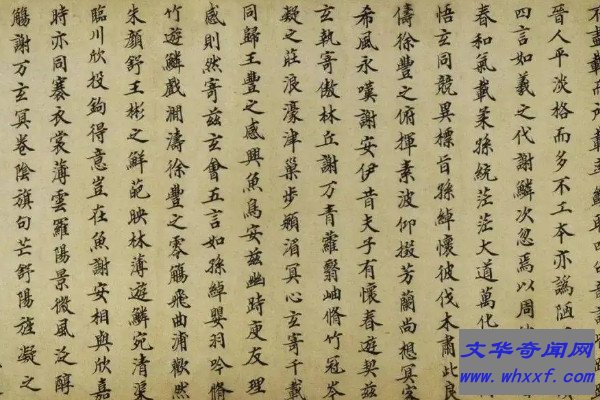 不盡載而所載蓋鮮
晉人平淡格而多不工卒亦謫陋
四言如羲之代謝鱗次忽焉以周
春和氣載柔孫統茫茫大道萬化
悟玄同競異標旨孫綽懷彼伐木肅此良
儔徐豐之俯揮素波仰掇芳蘭尚想冥客
希風永嘆謝安伊昔夫子有懷春遊契茲
玄執寄傲林丘謝万青蘿翳岫脩竹冠岑
凝之莊浪濠津巢步潁湄冥心玄寄千載
同歸王豐之感興魚鳥安茲幽跱庾友理
感則然寄茲玄會五言如孫綽嚶羽吟脩
竹遊鱗戲澗濤徐豐之零觴飛曲浦歡然
朱顏舒王彬之鮮葩映林薄遊鱗宛清渠
臨川欣投鉤得意豈在魚謝安相與欣嘉
時亦同褰衣裳薄雲羅陽景微風泛醇
觴謝万玄冥卷陰旗句芒舒陽旌凝之
文华奇闻网
www.whxxf.com